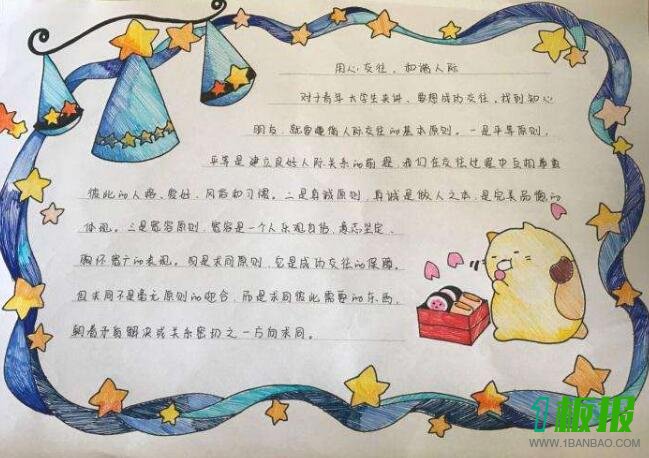 用心交往，和谐人际
对于青年大学生来讲，要想成功交往，找到知心
朋友，就要遵循人际交往的基本原则。一是平等原则，
平等是建立良好人际关系的前提，我们在交往过程中互相尊重
彼此的人格、爱好、风俗和习惯。二是真诚原则，真诚是做人之本，是完美品德的
体现。三是宽容原则，宽容是一个人乐观自信、意志坚定、
胸怀宽广的表现。四是求同原则，它是成功交往的保障。
但求同不是毫无原则的吻合，而是求同彼此需要的东西，
朝着矛盾解决或关系密切之一方向求同。
1板报
WWW.1BANBAO.COM